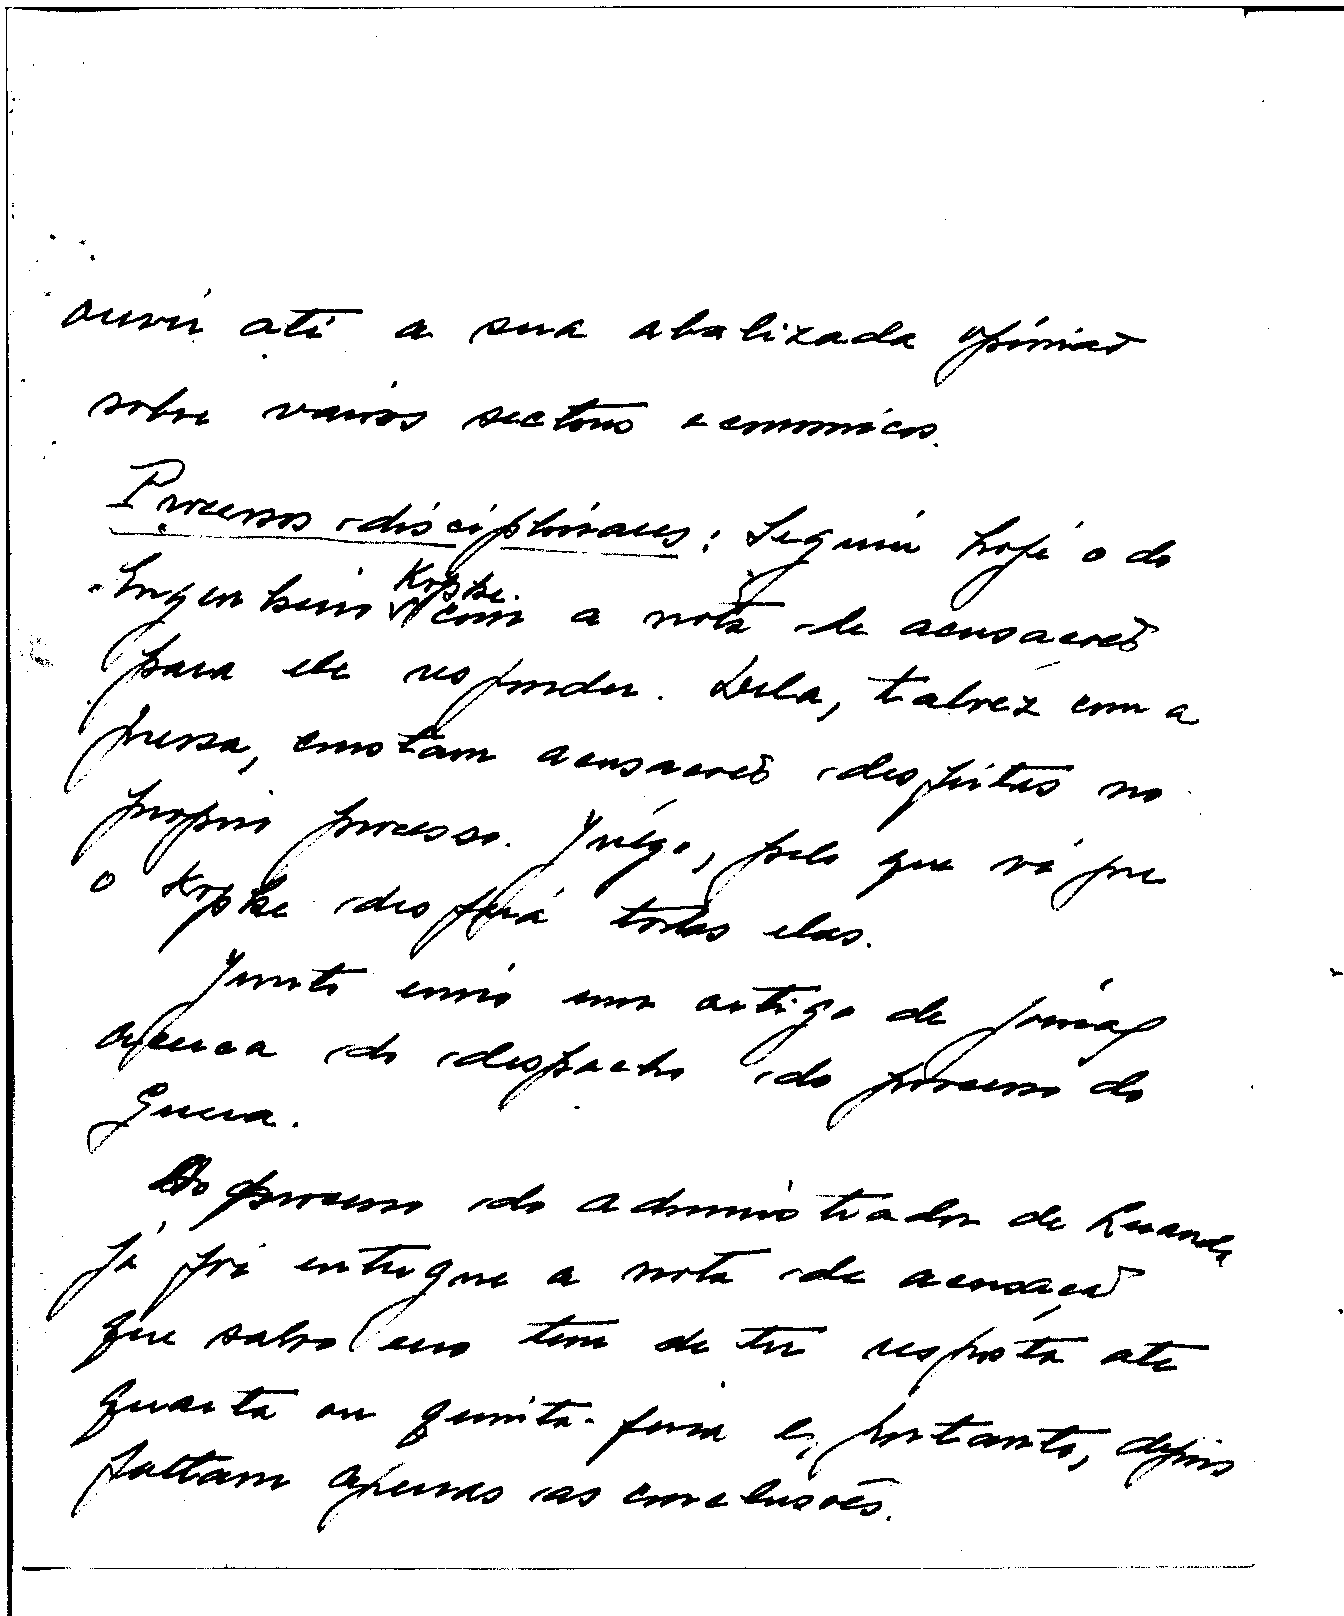 ouvir até a sua abalizada opinião
sobre varios sectores economicos.
Processos disciplinares: Seguiu hoje o do
Engenheiro Kopke com a nota de acusacões
para ele responder. Dela, talvez com a
pressa, constam acusacões desfeitas no
proprio processo. Julgo, pelo que vá por
o Kopke desfará todas elas.
Junto envio um artigo de jornal
acerca do despacho do processo do
Guerra.
Do processo do administrador de Luanda
já foi entregue a nota de acusação
que salvo erro tem de ter resposta até
quarta ou quinta-feira e, portanto, depois
faltam apenas as conclusões.